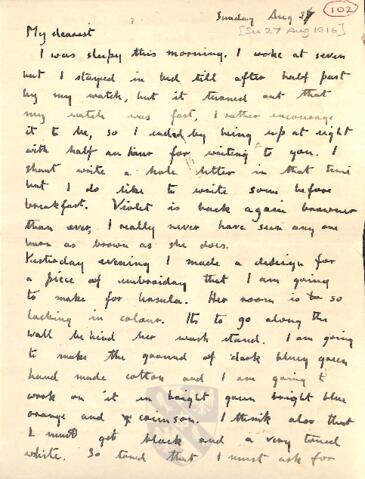 102
Sunday Aug 27
[Su 27 Aug 1916]
My dearest
I was sleepy this morning. I woke at seven
but I stayed in bed till after half past
by my watch, but it turned out that
my watch was fast, I rather encourage
it to be, so I ended by being up at eight
with half an hour for writing to you. I
shant write a hole letter in that time
but I do like to write som before
breakfast. Violet is back again browner
than ever, I really never have seen any one
burn as brown as she does.
Yesterday evening I made a design for
a piece of embroiday that I am going
to make for Ursula. Her room is so
lacking in colour. Its to go along the
wall behind her wash stand. I am going
to make the ground of dark bluey green
hand made cotton and I am going t
work on it in bright green bright blue
orange and crimson. I think also that
I must get black and a very toned
white. So toned that I must ask for